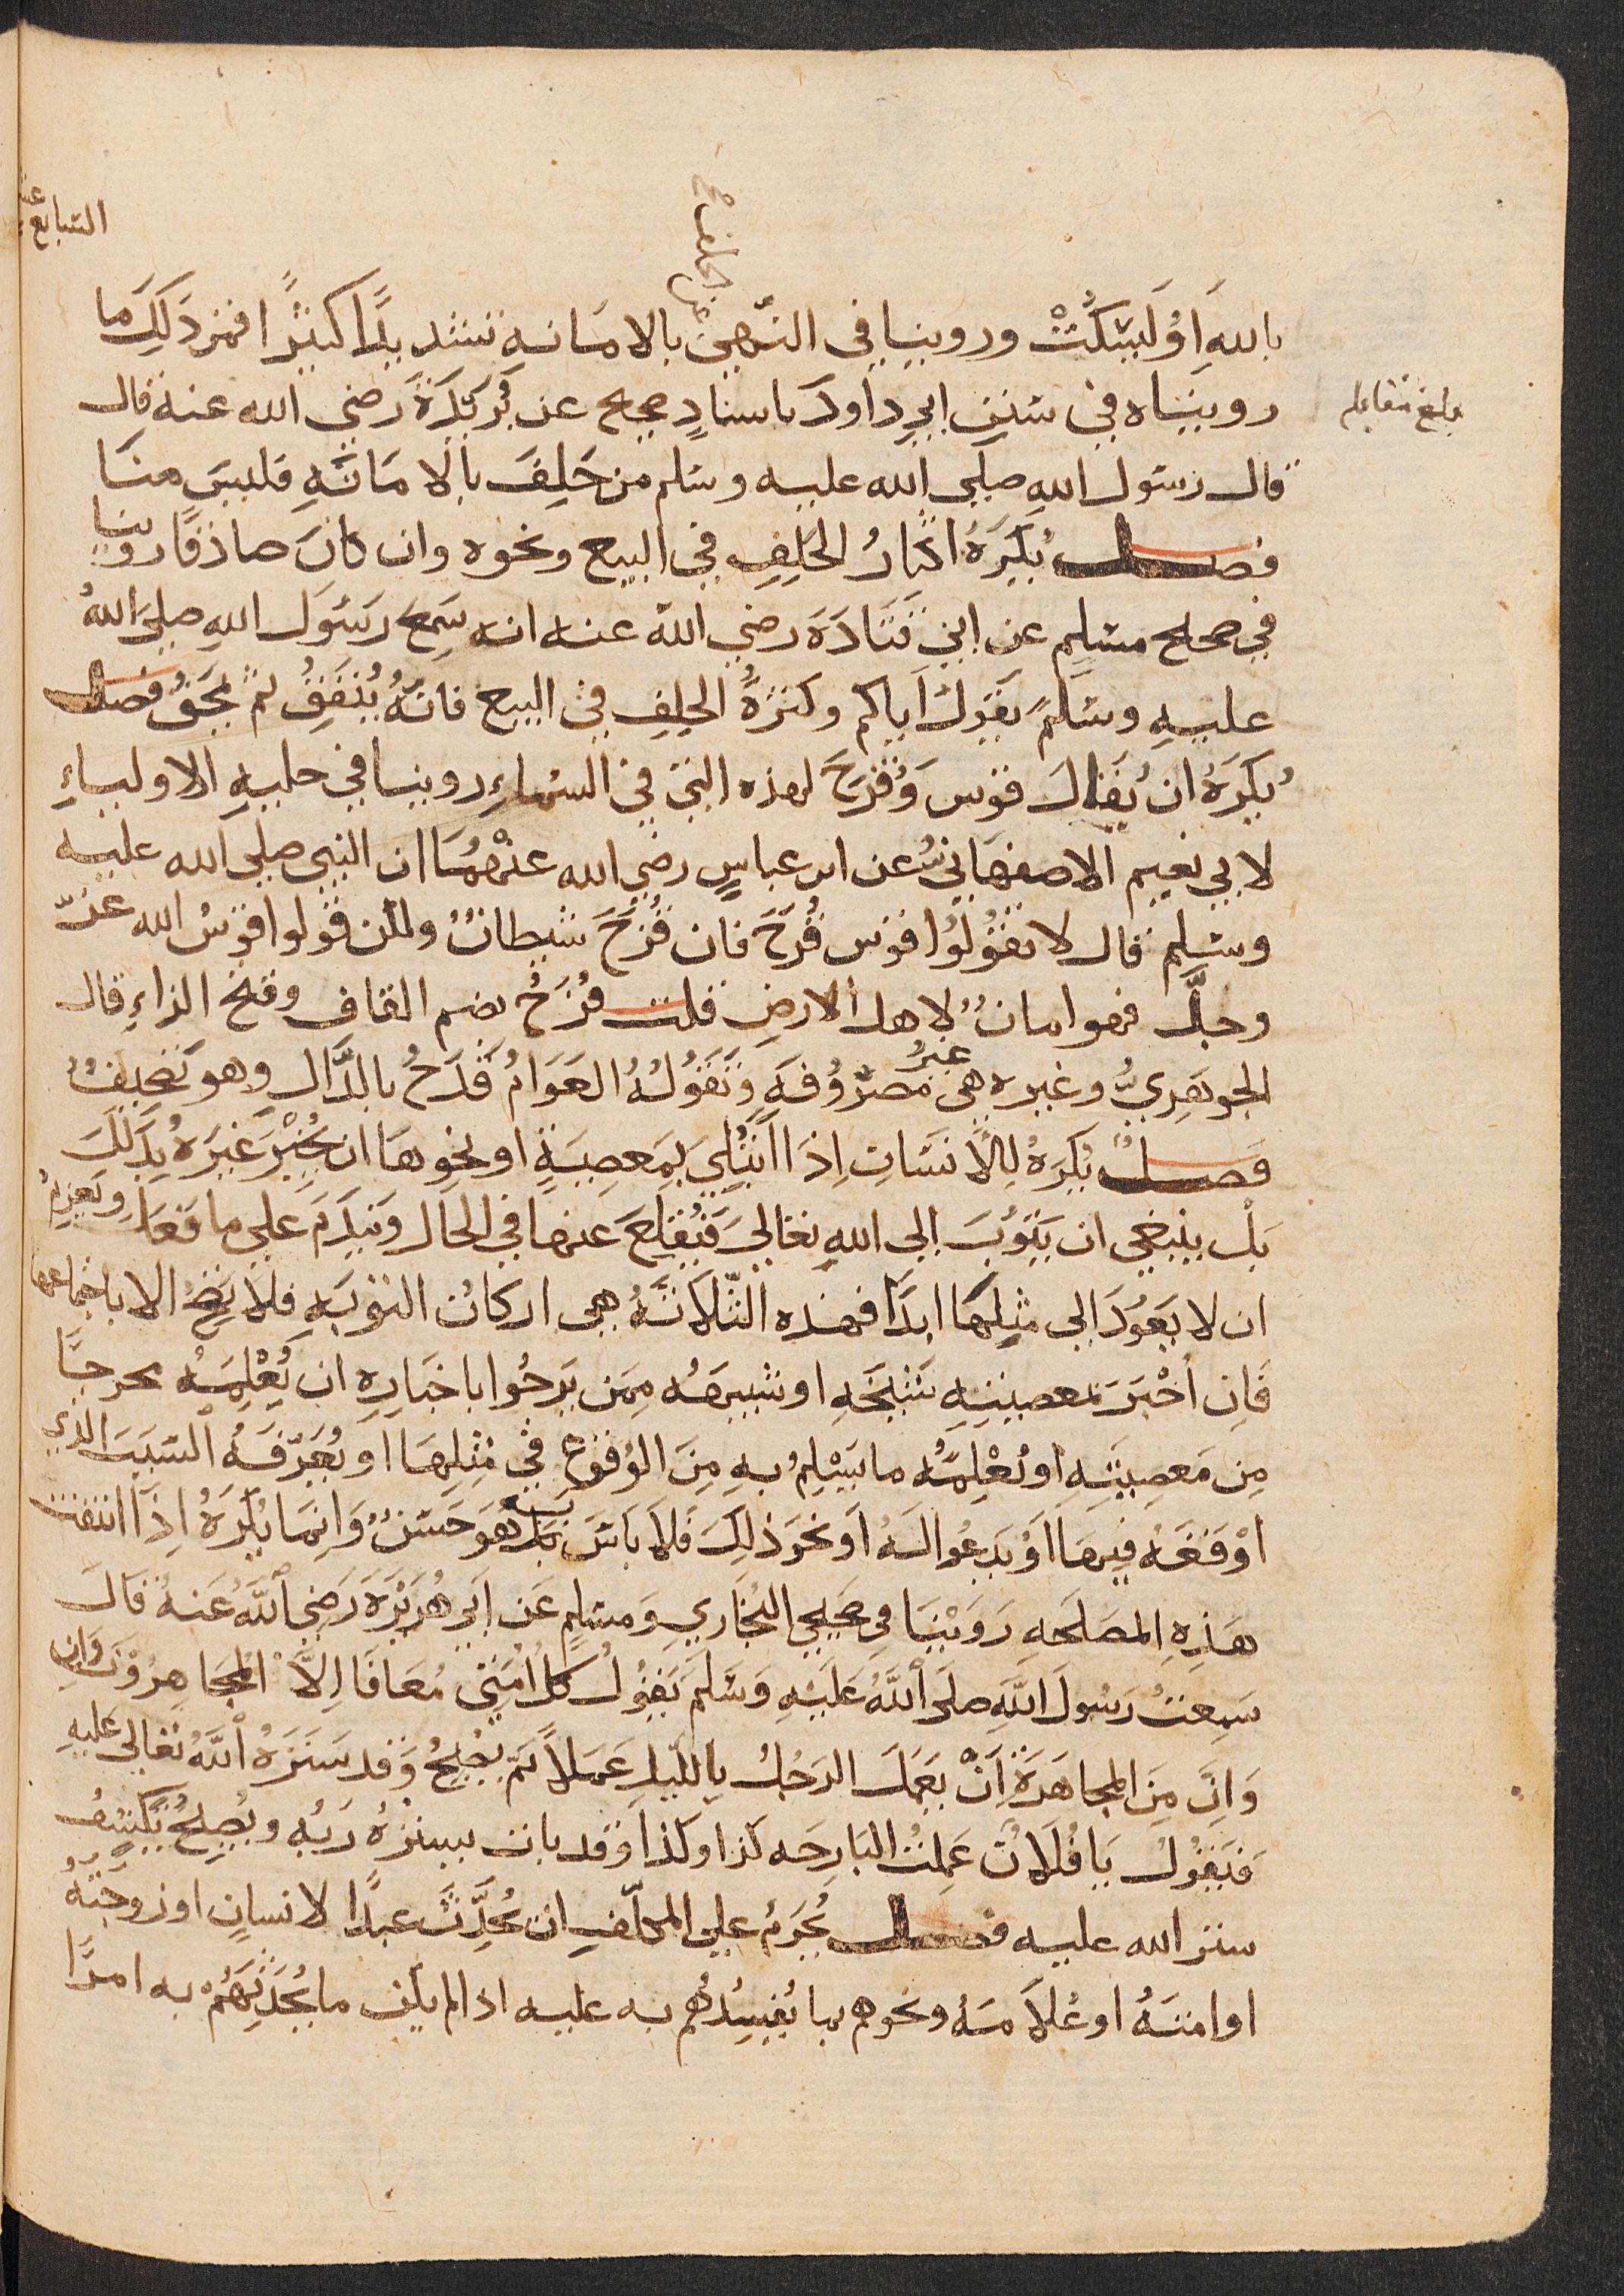 السابع عشر
عن الحلف صح
بالله او ليسكت وروينا في النهي بالامانه تشديدًا كثيرًا فمن ذلك ما
بلغ مقابله
رويناه في سنن ابي داود باسنادٍ صحيح عن بُرَيْدَةَ رضي الله عنه قال
قال رسول الله صلى الله عليه وسلم من حَلِفَ بالامَانَهِ فليسَ منَا
فصل يُكرَهُ اكثارُ الحَلِفِ في البيع ونحوه وان كانَ صادقًا روينا
في صحيح مسلم عن ابي قتَادَةَ رضي الله عنه انه سَمِعَ رَسُولَ اللهِ صلى اللهُ
عليهِ وسَلَّمَ يقول اياكم وكثرةُ الحلِفِ في البيع فانّهُ يُنفِقُ ثمّ يمحَقُ فصل
يُكرَهُ ان يُقَالَ قوْس وَقُزَحَ لهذه التي في السَّماءِ روينا في حليهِ الاولياءِ
لابي نعيم الاصفهَاني عن ابن عباسٍ رضي الله عنْهُمَا ان النبي صلى الله عليه
وسلم قال لا تقُولُوا قوْس قُزَحَ فان قُزَحَ شيطانٌ ولكن قولوا قوْسُ الله عزّ
وجلَّ فهو امانٌ لاهل الارضِ قلت قُزَحُ بضم القاف وفتح الزاءِ قال
الجوهَرِيُّ وغيره هي غيرُ مصْرُوفَهٍ وَتَقُولُهُ العَوَامُ قَدَحُ بالدَّالِ وهو تَصْحِيفٌ
فصل يُكرَهُ لِلاِنسَانِ اِذَا ابْتُلِيَ بِمَعصِيَةٍ او نحْوِهَا ان يُخْبِرَ غيرَهُ بِذَلِكَ
بَلْ ينبغي ان يَتوُبَ الي اللهِ تعَالَى فَيُقلِعَ عنها في الحَال ويَندَمَ على ما فَعَلَ ويَعزِمُ
ان لا يَعُودَ الى مثلِهَا ابدًا فهذه الثّلاثَهُ هي اركان التوْبَهِ فلا يَصِحُ الا باجتماعِهَا
فَاِن اَخْبَرَ بمعصيتِهِ شَيْخَهِ او شبههُ مِمَن يَرجُوا باخبَارِهِ ان يُعْلِمَهُ مخرجًا
مِن مَعصِيَتِهِ او يُعْلِمُهُ ما يَسْلِمُ بهِ مِنَ الوُقوْعِ في مِثلِهَا او يُعَرِّفَهُ السَببَ الذي
اوْقعَهُ فيهَا اَوْ يَدعُوا لَهُ اَو نحوَ ذلِكَ فَلا بَاسَ بِهِ بَل هوَ حَسَنٌ وَانمَا يُكرَهُ اِذَا انتفت
هَذِهِ المصَلَحَهِ رَوَيْنَا في صَحِيحي البُخَارِي وَمُسلِمٍ عَن اَبي هُرَيْرَةَ رَضِي اللَّهُ عَنهُ قَالَ
سَمِعتُ رَسُولَ اللَّهِ صلى اللَّهُ عَلَيْهِ وَسَلَمَ يَقُولُ كل اُمَتِي مُعَافَا اِلاَّ المجَاهِرُونَ وَانِ
وَاِنَّ مِنَ المجاهَرَةِ اَنْ يَعمَل الرَجُلُ بِاللّيلِ عَمَلاً ثمّ يُصْبِحُ وَقد سَتَرَهُ اللَّهُ تعَالَى عَليهِ
فَيَقُولُ يَا فُلَانُ عَمِلتُ البَارِحَه كذا وكذا وقد بات يستُرُهُ رَبُه ويُصبِحُ يكشِفُ
ستر الله عليه فصل يُحَرَمُ على المكلّفِ ان يُحَدِّثَ عبدًا لانسانٍ او زوجتَهُ
او امَتَهُ او غلامَهُ ونحوهم بما يُفسِدُهُم به عليه اذا لم يكن ما يُحَدِّثُهُمْ به امرًا